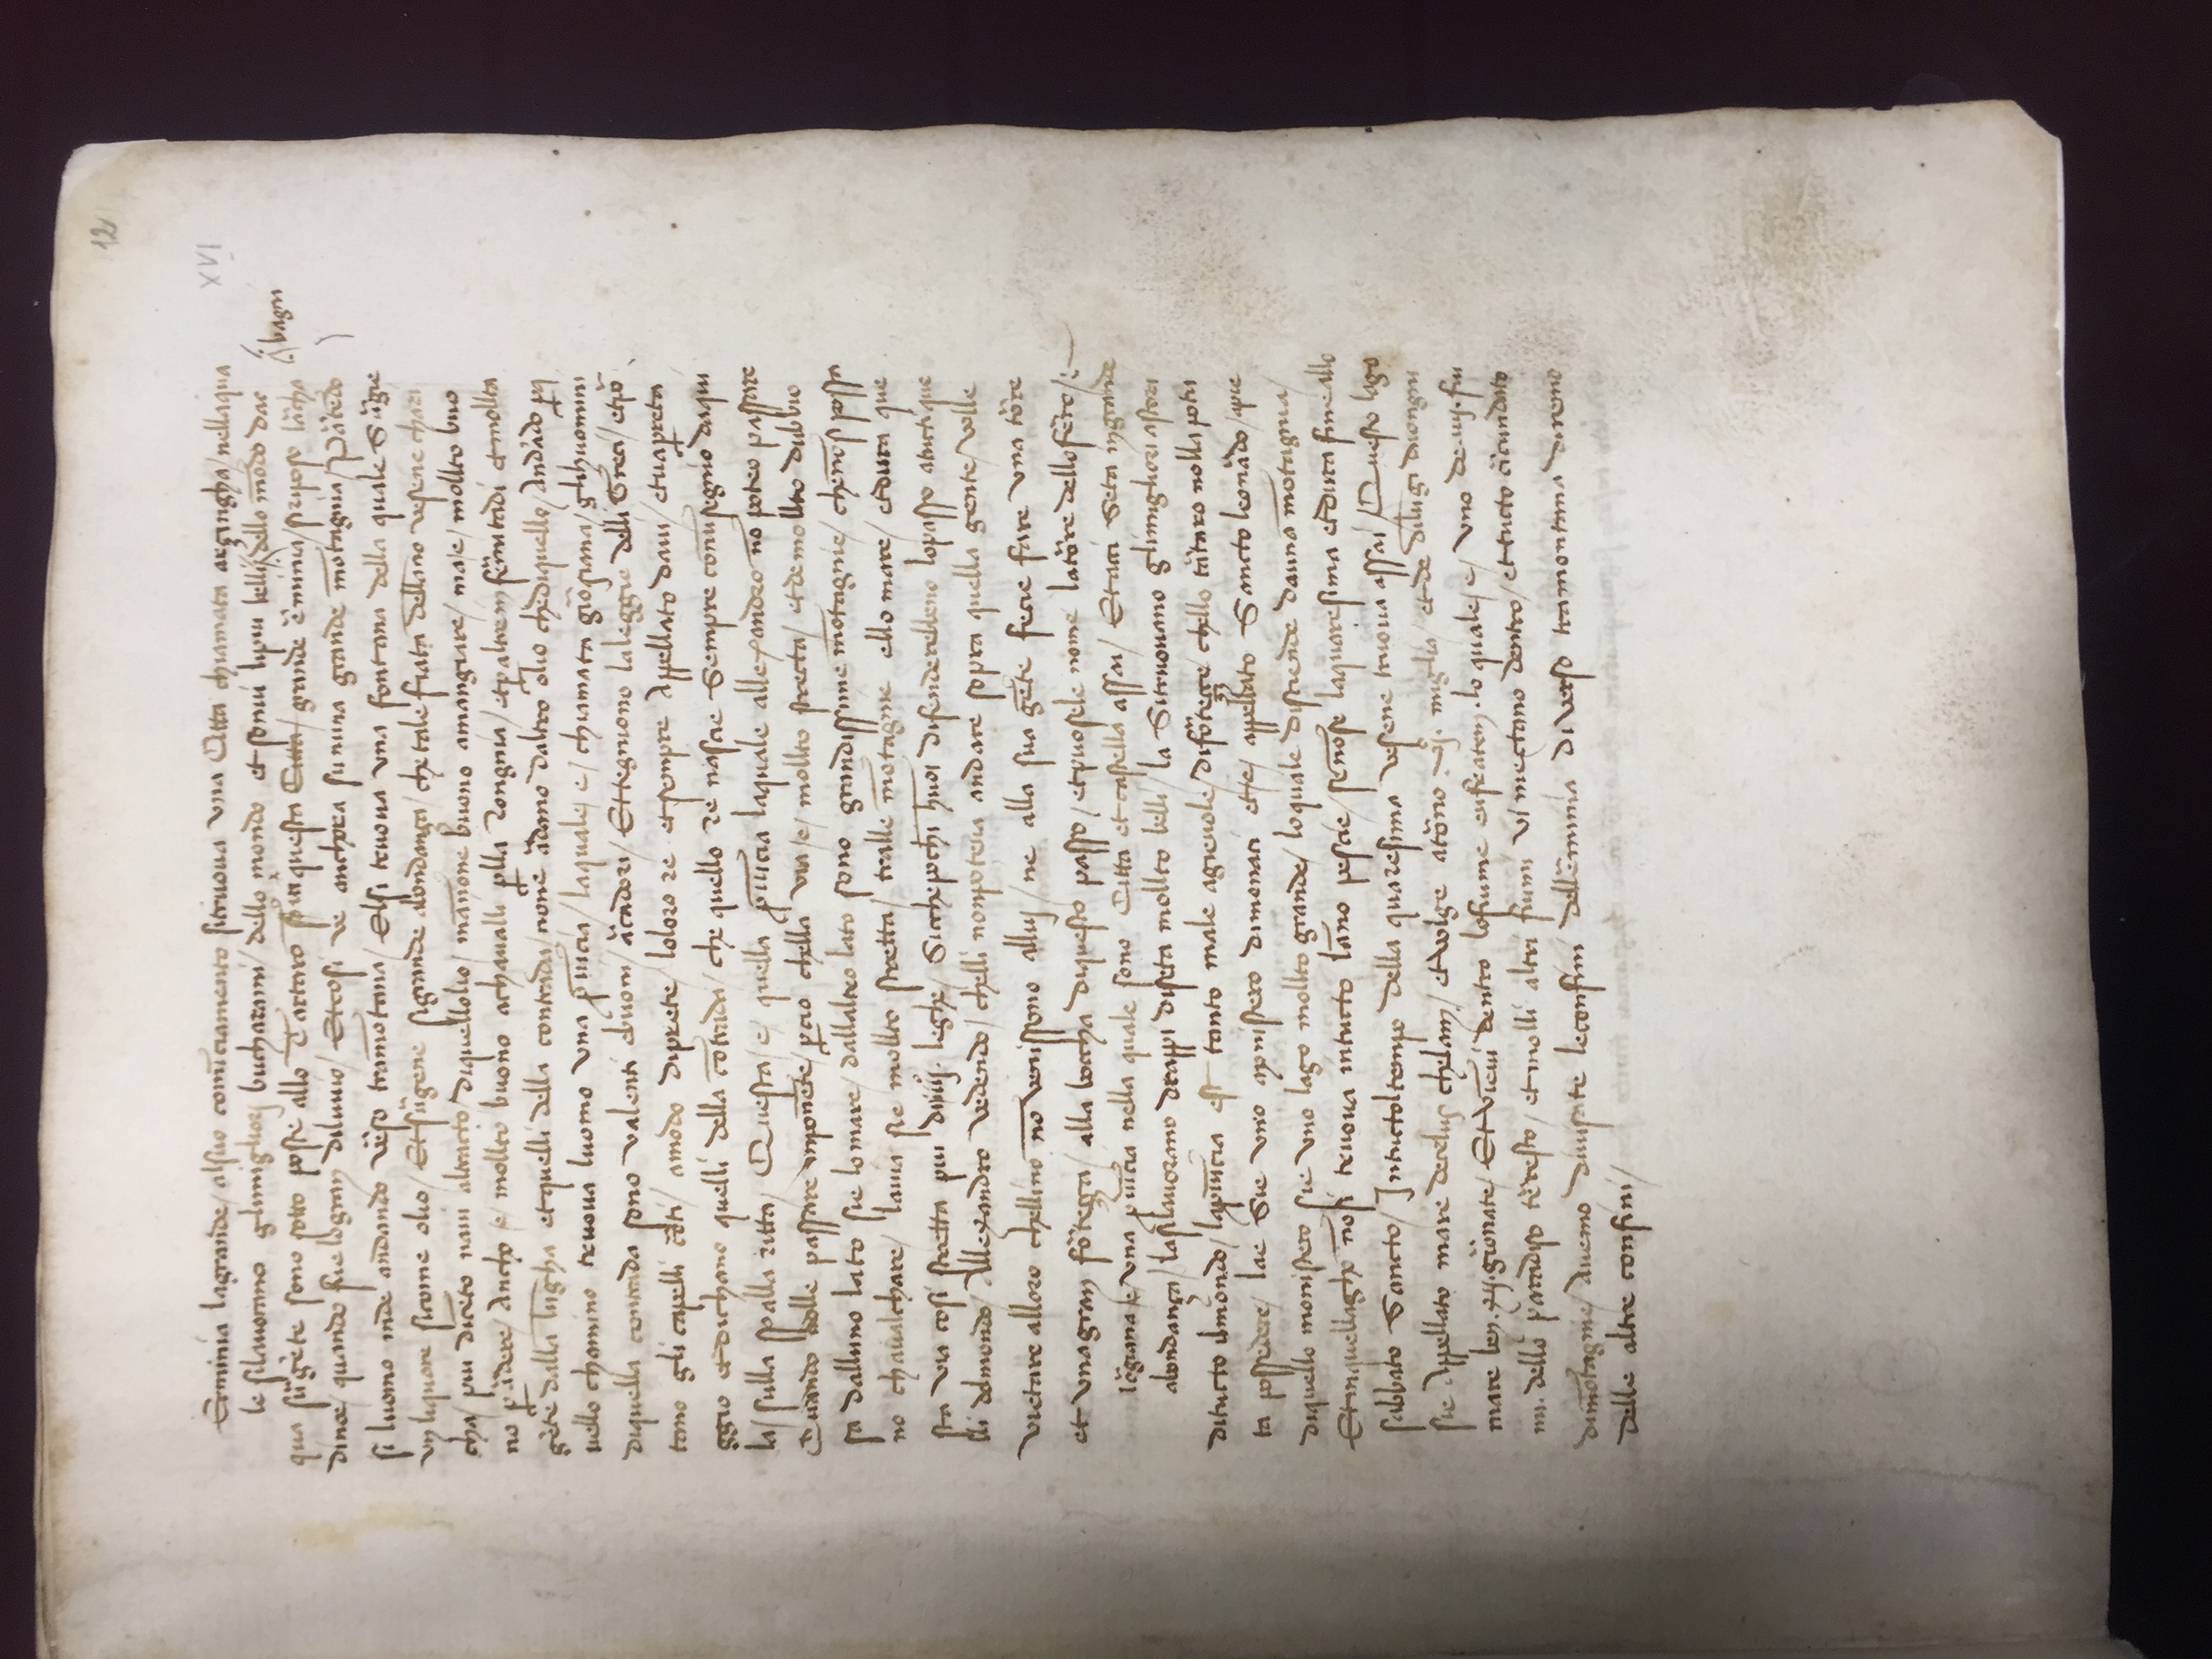 12
XVI
Erminia lagrande/ alsuo comīciamento sitruova una Citta chiamata arzingha/ nellaqua
le silavorano glimigliorj bucharami/ dello mondo et sonvi lipiu belli/ dello mōdo dac
bagni
qua surgēte sono sotto poste allo Tartaro questa Citta/ grande erminia/ siriposo larcha
dinoe/ quando fue logran diluvio/ Etcosi ve anchora sununa grande mōtagnia/ Partēdo
si luomo inde andando verso tramōtana/ Elsi truova una fontana della quale Surgie
un liquore sicome olio/ Etsurgene sigrande abondanza/ che tale fiata dellāno vesene chari
cha/ piu dicēto navi altracto/ diquellolio/ mānone buono amangiare/ ma/e/ mollto buo
no p ardere/ Ancho /e/ mollto buono achavalli plla rongnia/ etp altre infermitadi et mollta
gēte dalla lūgha et quelli della contrada/ none ardano daltro olio chediquello/ Andādo pq
uello chamino truova luomo una pvīcia/ laquale/ e/ chiamata giorgiana/ glihuomini
diquella contrada sono valenti ebuoni/ arcadori/ Ettegniono laleggie delli Greci/ etpor
tano gli capelli corti/ amodo diprete/ loloro re et sempre Appellato davi/ etvapreta
ggio et dichano quelli della cōtrada/ che quello re nascie sempre conūsegnio daqui
la/ sulla spalla ritta/ Questa/ e/ quella pvīcia laquale allexandro nō poteo passare
Quando volle passare inponēte/ pcio chella via/e/ mollto strecta/ et de mollto dubbio
sa dalluno lato sie lomare/ dallaltro lato sono grandissime mōtagnie/ chenōsi possa
no chavalchare/ lavia sie mollto stretta/ tralle mōtagnie ello mare/ etdura que
sta via cosi stretta piu diiiij. leghe/ Sicchepochi hūoi difenderebbeno lopasso atucti que
lli delmondo/ Allexandro vedendo/ chelli nonpoteva andare sopra quella gente/ volle
vietare alloro chellino nō venissono allui/ ne alla sua gēte fecie fare una torre
et unagran fortezza/ alla boccha diquesto passo/ et puosele nome latorre delloferro/
Iorgiana /e/ una pvīcia nella quale sono Citta et castella assai/ Etacci Seta ingrande
abondanza/ lasilavorano drappi diseta mollto belli/ la Sitruovano glimigliori astori
ditucto ilmondo/ lapvīcia est tanto male agievole/ difortezze chello tartaro nolla potu
ta possedere/ lae Sie uno monistero dimonaci et/e/ appellato Sancto leonardo/ apie
diquello monistero sie uno lago mollto grande/ loquale disciende dauna mōtagnia/
Etinquellagho nōsi truova intucto lāno pescie/ senōse laquaresima etdura fineallo
sabbato Sancto/ Intuctoltempo della quaresima vesene truova assai/ Questo lago
sie Appellato mare decelus chelam/ etvolge atorno vj. miglia/ et de dilūgi daongni
mare ben. xij. giornate/ Etviēvi dentro lofiume eufratem. lo quale/ e/ uno de. iiij. fiu
mi. dello paradiso terresto/ et molli altri fiumi vi mectano dentro/ et tucto circundato
dimōtagnie/ Avemo divisate leconfini dellerminia di verso tramontana diremo
delle altre confini/